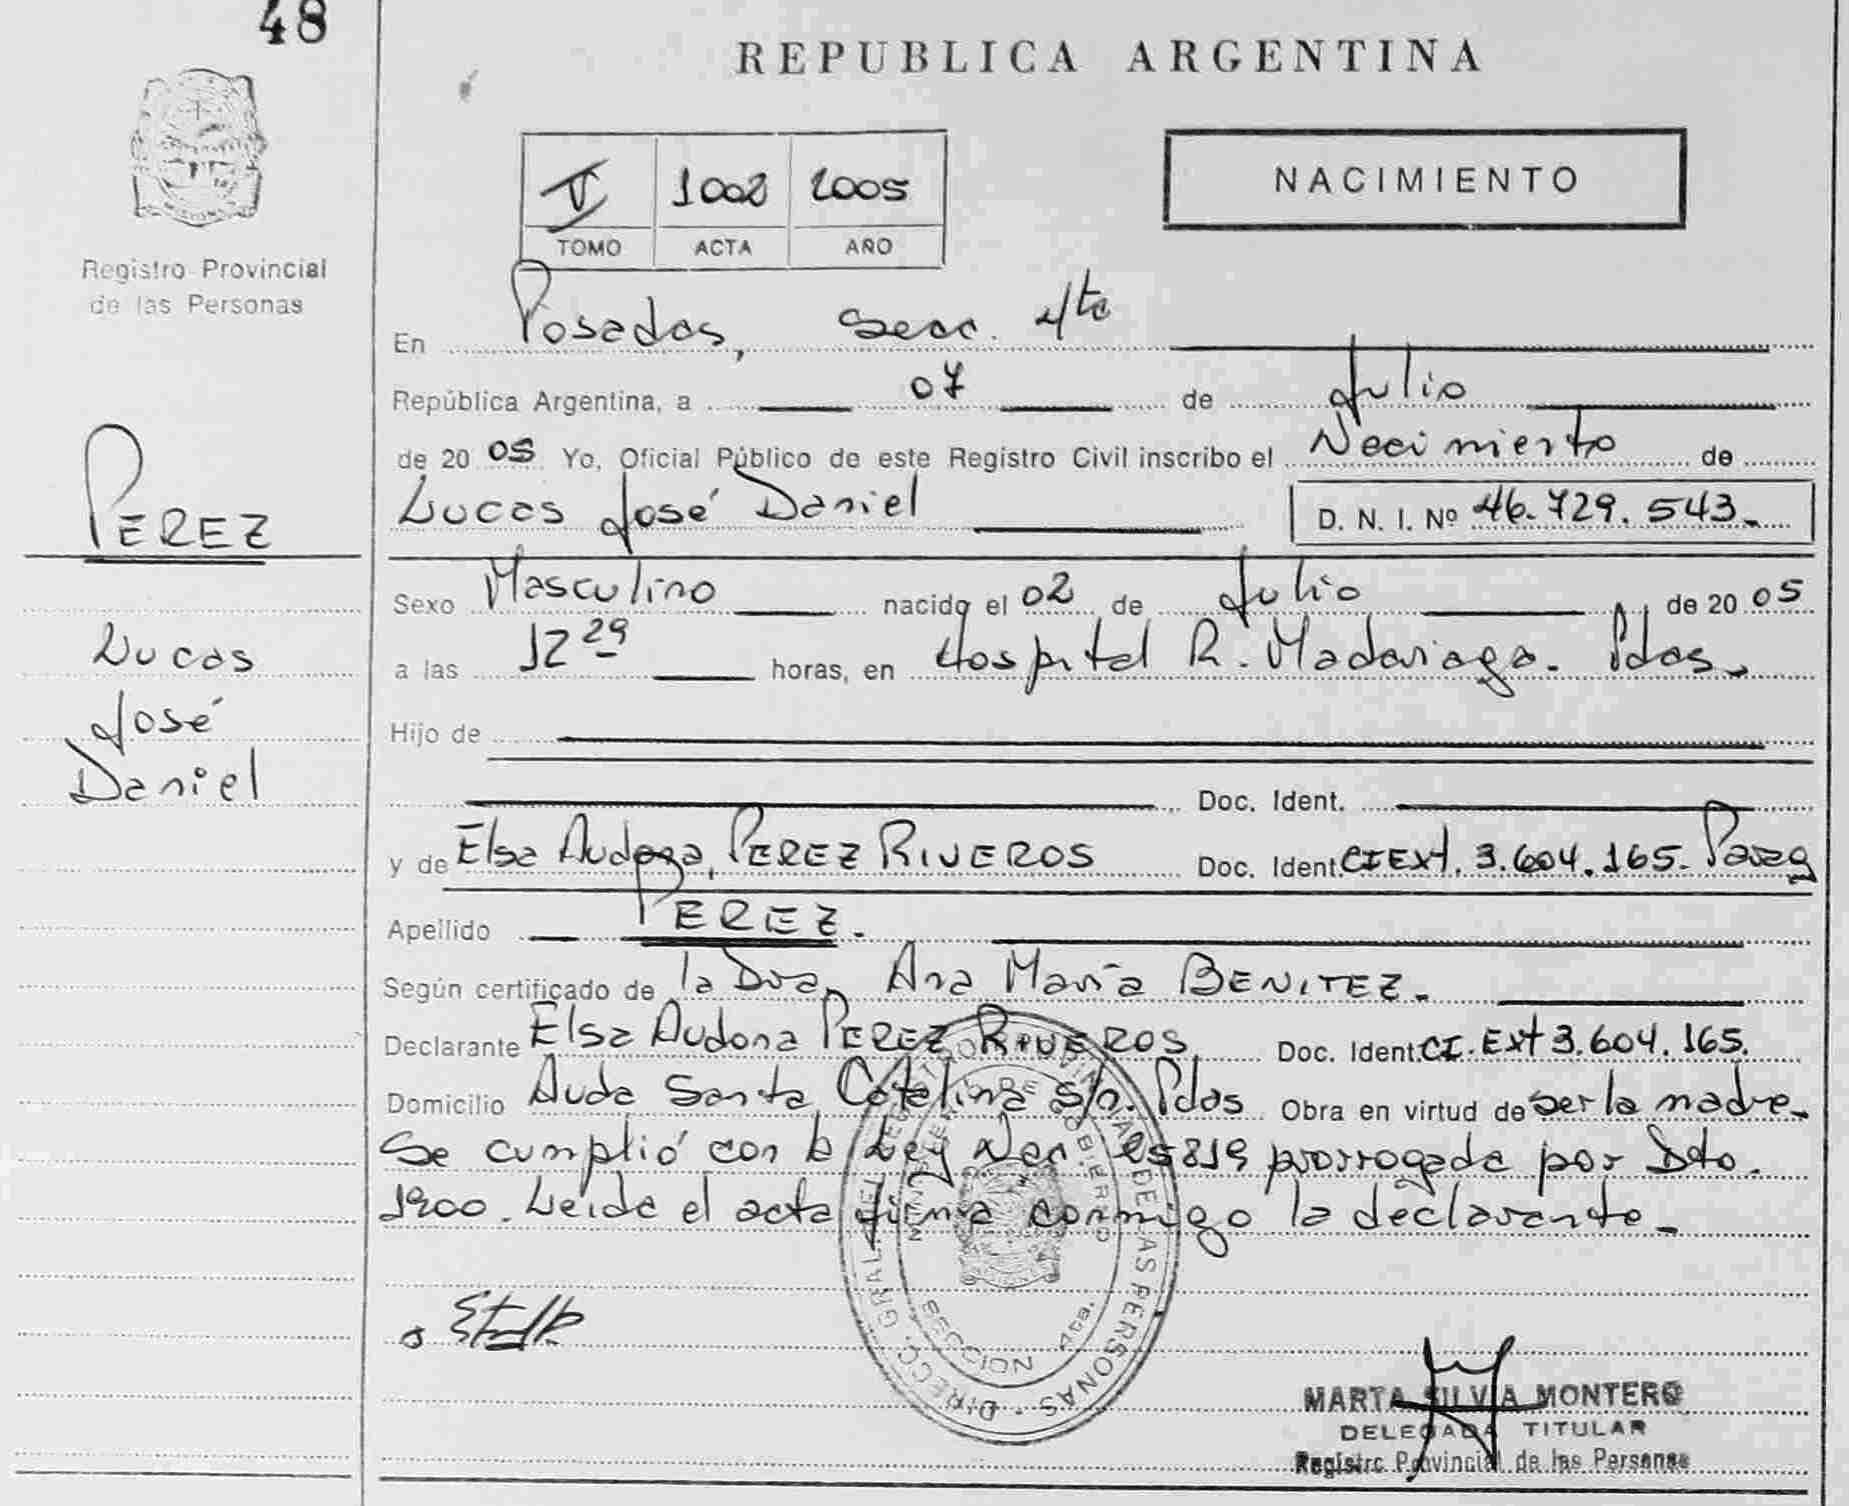 48
REPUBLICA ARGENTINA
NACIMIENTO
V 1002 2005
TOMO ACTA AÑO
Registro Provincial
de las Personas
PEREZ
Lucas
José
Daniel
En Posadas, Secc. 4ta
República Argentina, a 07 de Julio
de 20 05 Yo, Oficial Público de este Registro Civil inscribo el Nacimiento de
Lucas José Daniel D. N. I. Nº 46.729.543.
Sexo Masculino nacido el 02 de Julio de 20 05
a las 12 29 horas, en Hospital R. Madariaga. Pdas.
Hijo de
Doc. Ident.
y de Elsa Audona, PEREZ RIVEROS Doc. Ident. CI Ext. 3.604.165. Parag
Apellido PEREZ.
Según certificado de la Dra. Ana María BENITEZ.
Declarante Elsa Audona PEREZ RIVEROS Doc. Ident. CI. Ext 3.604.165.
Domicilio Avda Santa Catalina s/n. Pdas Obra en virtud de ser la madre.
Se cumplió con la Ley Nac. 25819 prorrogada por Dto.
1900. Leida el acta firma conmigo la declarante.
DIRECC. GRAL. DEL REGISTRO PROVINCIAL DE LAS PERSONAS
MINISTERIO DE GOBIERNO
SECCION 4ta.
MARTA SILVIA MONTERO
DELEGADA TITULAR
Registro Provincial de las Personas